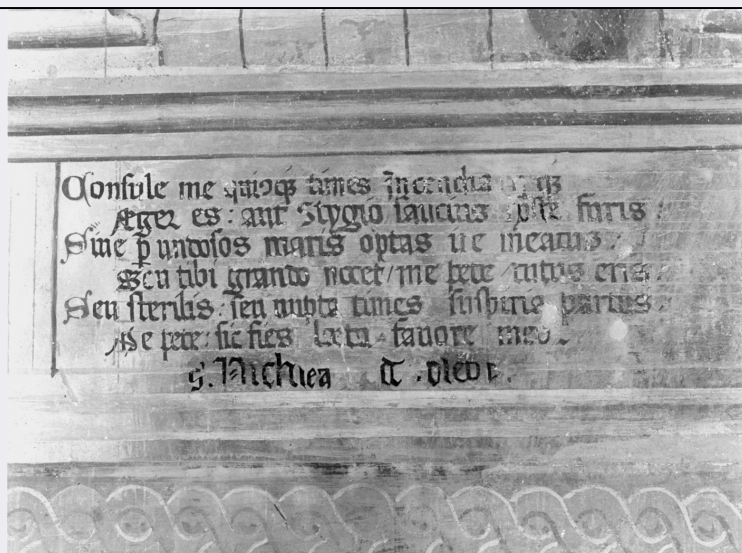 Consule me quisq3 times Incendia
Aeger es: aut Stygio saucius furis:
Siue p undosos maris optas ire meatus:
Seu tibi grando nocet / me pete / tutus eris:
Seu sterilis: seu nupta times suspiria partus:
Me pete: sic fies læta fauore meo.
S. Nichlea